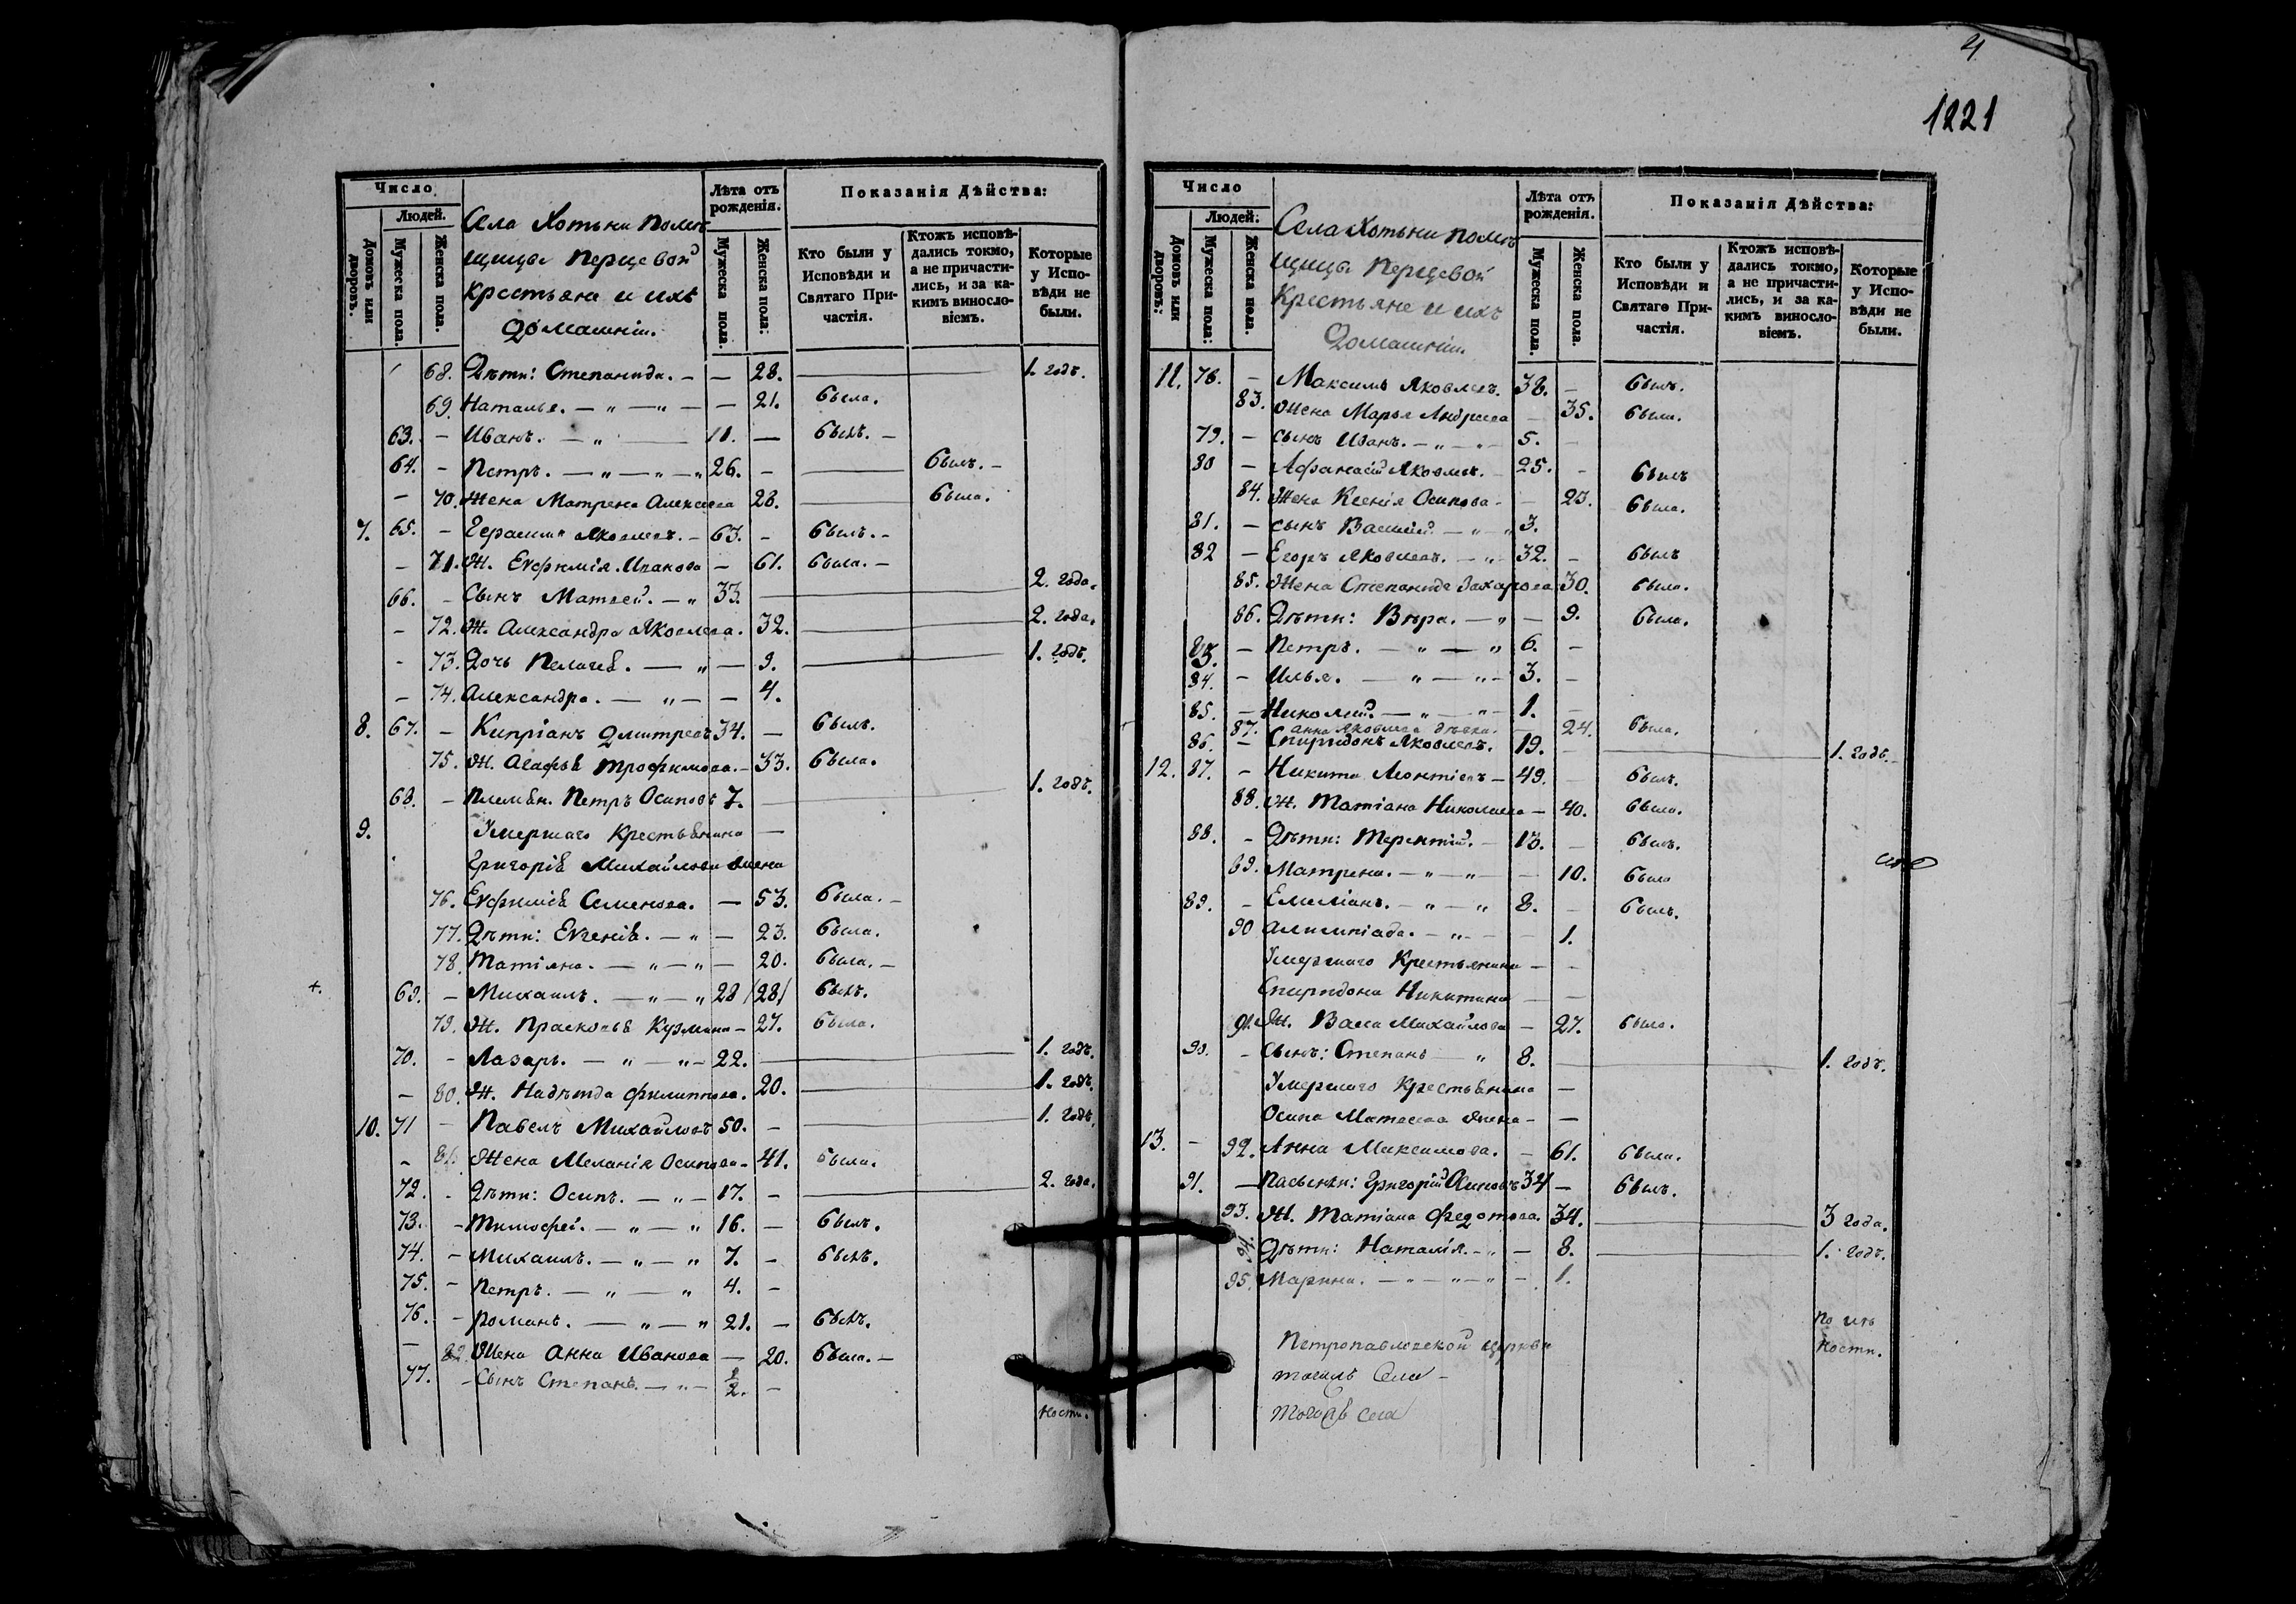 Число
Людей.
Домовъ или дворовъ.
Мужеска пола.
Женска пола.
Села Хотьни помѣ-
щицы Перцевой
крестьяне и ихъ
домашніи.
Лѣта отъ рожденія.
Мужеска пола.
Женска пола:
Показанія Дѣйства:
Кто были у Исповѣди и Святаго Причастія.
Ктожъ исповѣдались токмо, а не причастились, и за какимъ винословіемъ.
Которые у Исповѣди не были.
68. Дѣти: Степанида. — — 28. 1. годъ.
69. Наталья. — " — " — — 21. была.
63. — Иванъ. — " — 11. — былъ. —
64. — Петръ. — " — " — " 26. — былъ. —
— 70. Жена Матрена Алексѣева 28. была.
7. 65. — Герасимъ Яковлевъ. — 63. — былъ. —
— 71. Ж. Евфимія. Ипакова — 61. была. —
66. — Сынъ Матвей. — " 33. 2. года.
— 72. Ж. Александра Яковлева. 32. 2. года.
— 73. Дочь Пелагея. — " — 9. 1. годъ.
— 74. Александра. — " — — 4.
8. 67. — Кипріанъ Дмитревъ 34. — былъ.
75. Ж. Агафья Трофимова. — 33. была.
68. — Племян. Петръ Осиповъ 7. 1. годъ.
9. Умершаго Крестьянина —
Григорія Михайлова жена
76. Евфимія Семенова. — 53. была. —
77. Дѣти: Евгенія. — " — 23. была.
78. Татіяна. — " — " — 20. была. —
+. 69. — Михаилъ. — " — " 28 /28/ былъ.
79. Ж. Прасковья Кузмина — 27. была.
70. — Лазарь. — " — " — 22. 1. годъ.
— 80. Ж. Надѣжда Филиппова. 20. 1. годъ.
10. 71 — Павелъ Михайловъ 50. — 1. годъ.
— 81. Жена Меланія Осипова — 41. была.
72. — Дѣти: Осипъ. — " — 17. — 2. года.
73. — Тимофей. — " — " 16. — былъ.
74. — Михаилъ. — " — " 7. — былъ.
75. — Петръ. — " — " 4. —
76. — Романъ. — " — " 21. — былъ.
— 82. Жена Анна Иванова — 20. была. —
77. — Сынъ Степанъ. — " — ½. —
ности.
4
1221
Число
Людей:
Домовъ или дворовъ:
Мужеска пола:
Женска пола.
Села Хотьни помѣ-
щицы Перцевой
Крестьяне и ихъ
домашніи.
Лѣта отъ рожденія.
Мужеска пола.
Женска пола.
Показанія Дѣйства:
Кто были у Исповѣди и Святаго Причастія.
Ктожъ исповѣдались токмо, а не причастились, и за какимъ винословіемъ.
Которые у Исповѣди не были.
11. 78. — Максимъ Яковлевъ. 38. — былъ.
83. Жена Марья Андреева — 35. была.
79. — Сынъ Иванъ. — " — 5. —
80 — Афанасій Яковлевъ. — 25. — былъ
84. Жена Ксенія Осипова — — 23. была.
81. — сынъ Василій — " — " 3.
82 — Егоръ Яковлевъ. — " 32. — былъ
85. Жена Степанида Захарова 30. была.
86. Дѣти: Вѣра. — " — 9. была.
83. — Петръ. — " — " 6. —
84. — Илья. — " — " — 3. —
85. — Николай. — " — " — 1. —
87. Анна Яковлева дѣвка. — 24. была.
86. — Спиридонъ Яковлевъ. 19. — 1. годъ. —
12. 87. — Никита Леонтіевъ — 49. — былъ.
88. Ж. Татіана Николаева — 40. была.
88. — Дѣти: Терентій. — 13. — былъ.
89. Матрена. — " — " — — 10. была
89. — Емиліанъ. — " — " 8. — былъ.
90 Алимпіада. — " — — 1.
Умершаго Крестьянина — —
Спиридона Никитина — —
91. Ж. Васса Михайлова — 27. была.
90. — Сынъ: Степанъ — " 8. 1. годъ.
Умершаго Крестьянина —
Осипа Матвеева жена — —
13. — 92. Анна Максимова. — 61. была.
91. — Пасынки: Григорій Осиповъ 34 — былъ.
93. Ж. Татіана Федотова. 34. 3 года.
94. Дѣти: Наталія. — " — 8. 1. годъ.
95. Марина. — " — " — " — 1.
Петропавловской церкви
тогожъ Села —
тогожъ села
ности.